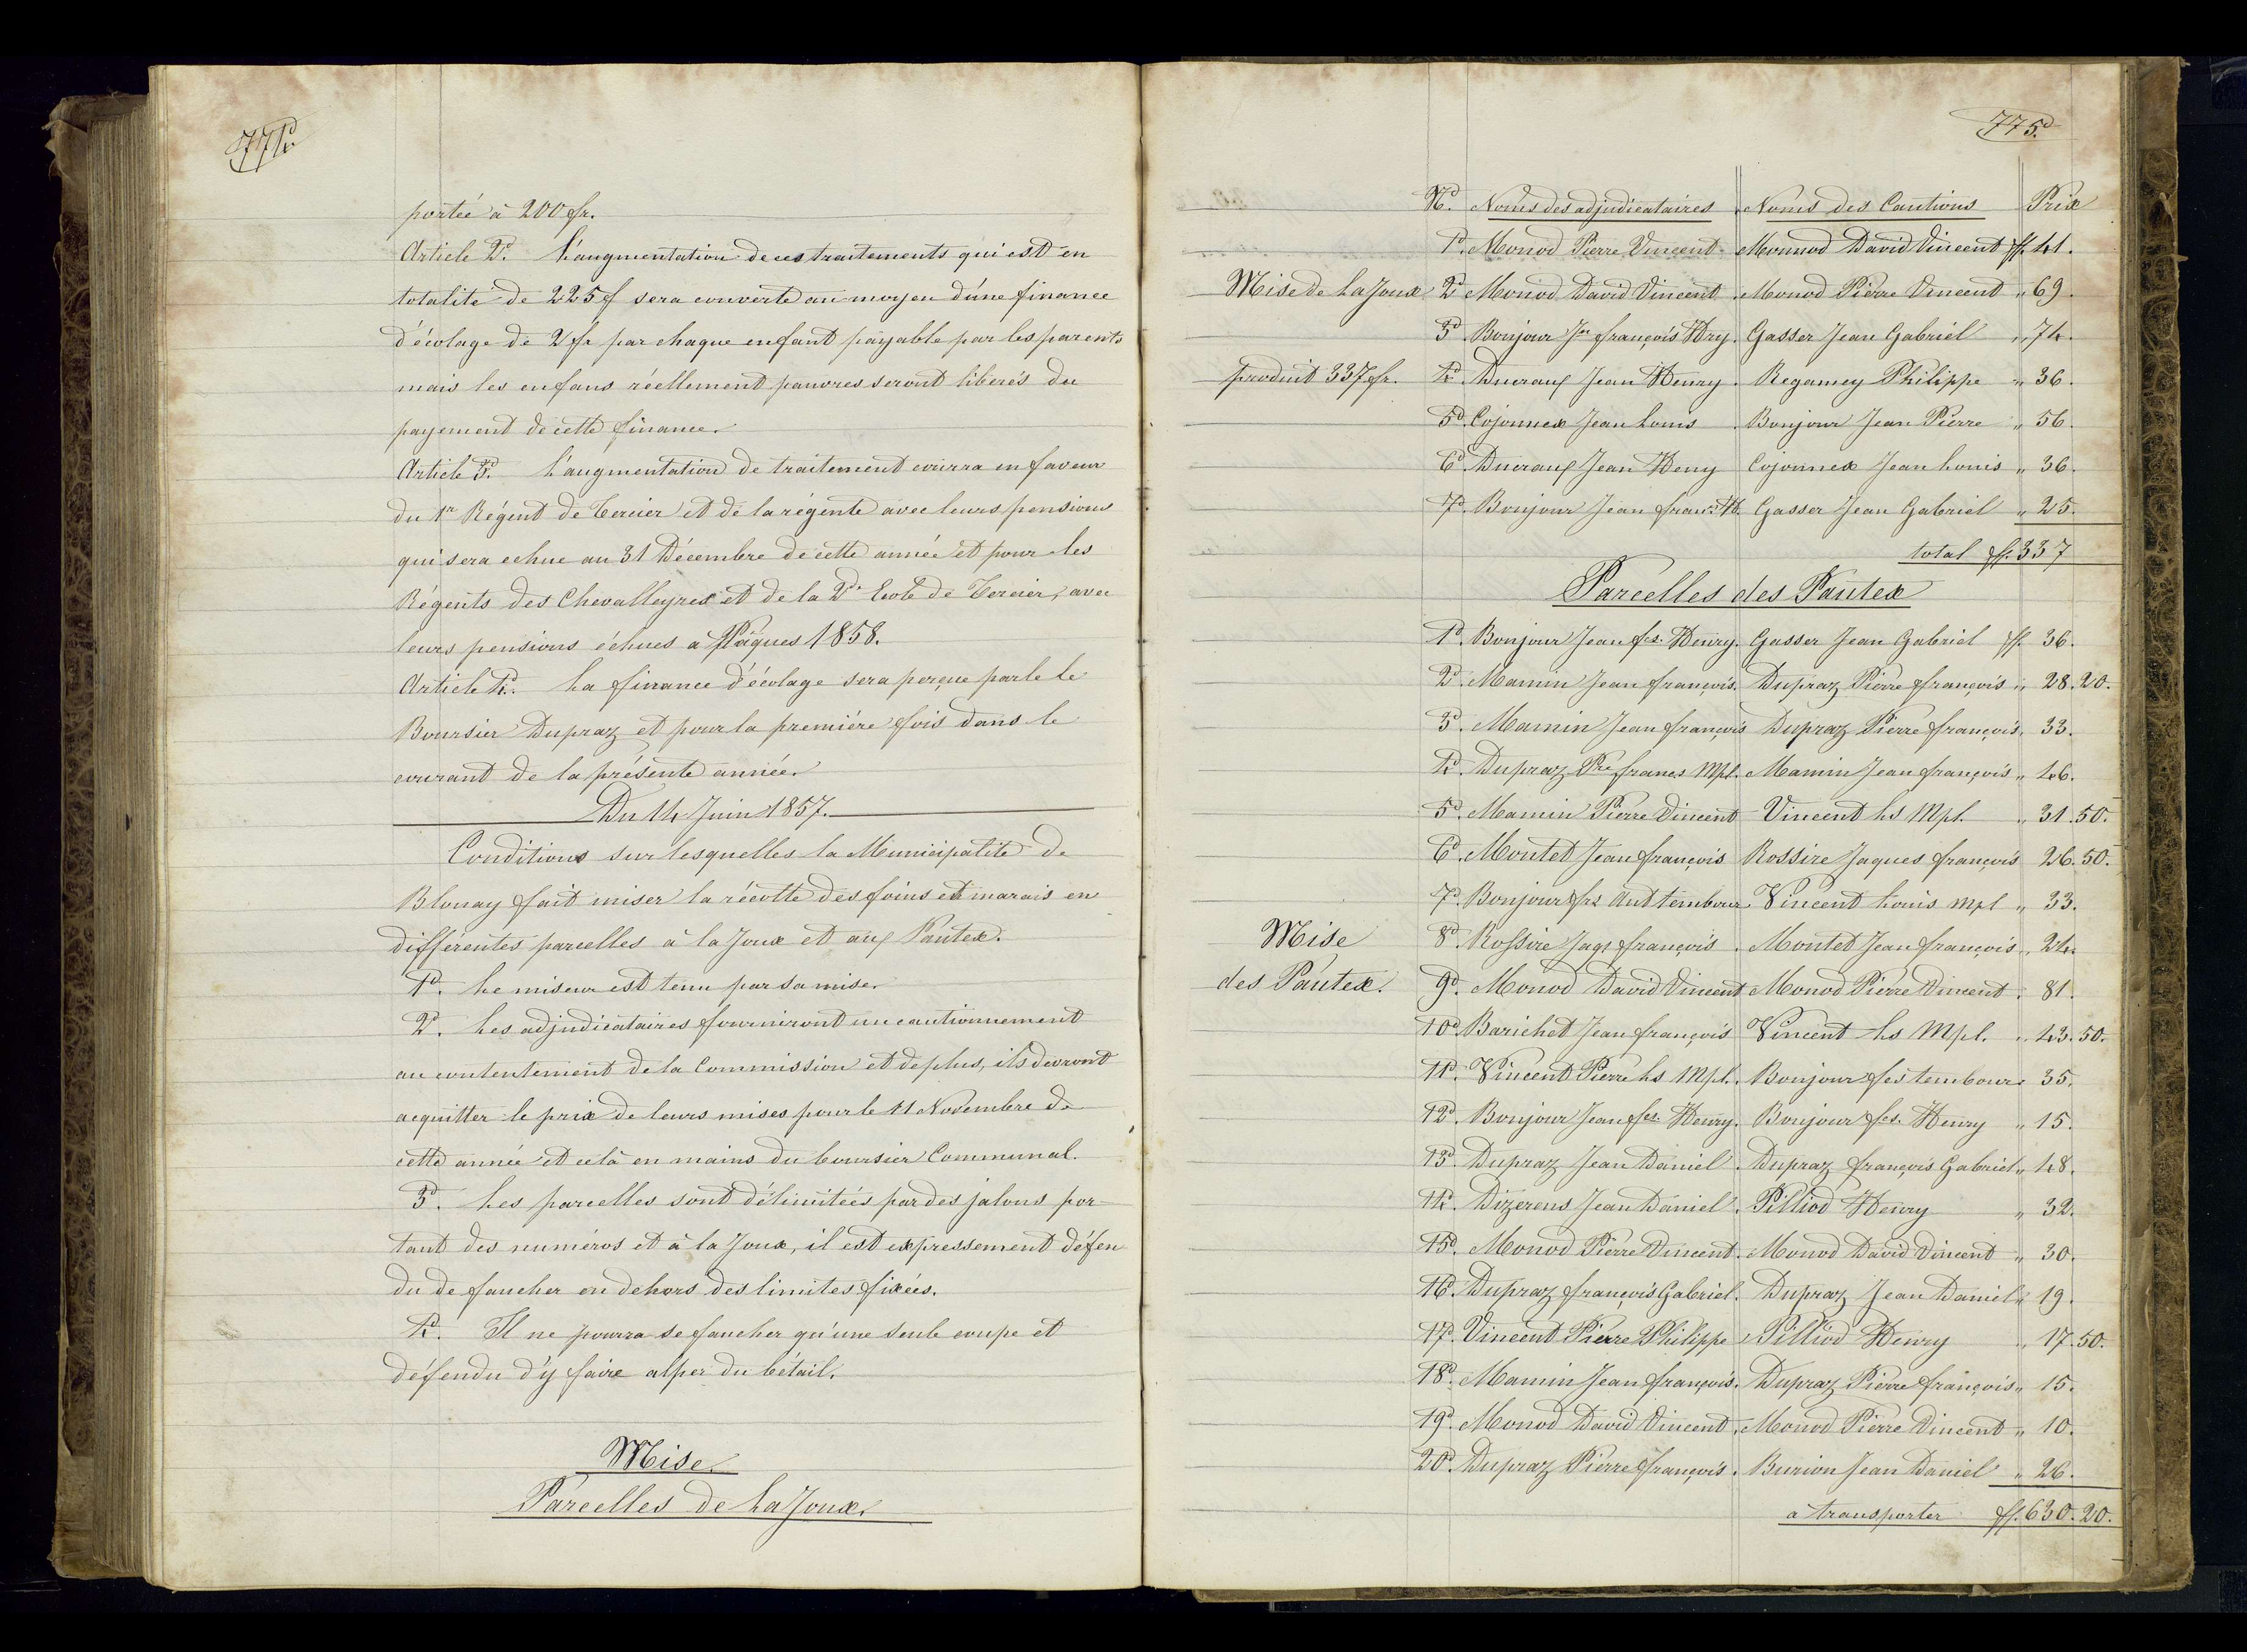 774.
portée à 200 fr.
Article 2d. L'augmentation de ces traitements qui est en
totalité de 225 f sera couverte au moyen d'une finance
d'écolage de 2 fr par chaque enfant payable par les parents
mais les enfans réellement pauvres seront liberés du
payement de cette finance.
Article 3d. L'augmentation de traitement courra en faveur
du 1er Régent de Cercier et de la régente avec leurs pensions
qui sera echue au 31 Décembre de cette année et pour les
Régents des Chevalleyres et de la 2de Ecole de Cercier, avec
leurs pensions échues a Pâques 1858.
Article 4d. La finance d'écolage sera perçue par le le
Boursier Dupraz et pour la premiére fois dans le
courant de la présente année.
Du 14 Juin 1857.
Conditions sur lesquelles la Municipalité de
Blonay fait miser la récolte des foins et marais en
différentes parcelles à la Joux et aux Pautex.
1d. Le miseur est tenu par sa mise.
2d. Les adjudicataires fourniront un cautionnement
au contentement de la Commission et de plus, ils devront
acquitter le prix de leurs mises pour le 11 Novembre de
cette année et celà en mains du boursier Communal.
3d. Les parcelles sont délimitées par des jalons por-
tant des numéros et à la Joux, il est expressement défen
du de faucher en dehors des limites fixées.
4d. Il ne pourra se faucher qu'une seule coupe et
défendu d'y faire alper du bétail.
Mise.
Parcelles de La Joux.
775.
No. Noms des adjudicataires Noms des Cautions Prix
1d. Monod Pierre Vincent Monnod David Vincent ff. 41.
Mise de La Joux 2d Monod David Vincent Monod Pierre Vincent " 69.
3d Bonjour Jn françois Hry. Gasser Jean Gabriel " 74.
produit 337 fr. 4d. Ducraux Jean Henry. Regamey Philippe " 36.
5d. Cojonnex Jean Louis Bonjour Jean Pierre " 56.
6d. Ducraux Jean Heny Cojonnex Jean Louis " 36.
7d. Bonjour Jean frans H. Gasser Jean Gabriel " 25.
total ff. 337
Parcelles des Pautex
1d. Bonjour Jean fcs. Henry. Gasser Jean Gabriel ff. 36.
2d. Mamin Jean françois. Dupraz Pierre françois " 28.20.
3d. Mamin Jean françois Dupraz Pierre françois, 33.
4d. Dupraz Pre francs Mpl. Mamin Jean françois " 46.
5d. Mamin Pierre Vincent Vincent Ls Mpl. " 31.50.
6d. Montet Jean françois Rossire Jaques françois 26.50.
7d. Bonjour frs Ant tembour Vincent Louis Mpl " 33.
Mise 8d. Rossire Jaqs françois. Montet Jean françois " 24.
des Pautex. 9d. Monod David Vincent Monod Pierre Vincent. 81.
10d. Barichet Jean françois Vincent Ls Mpl. " 43.50.
11d. Vincent Pierre Ls Mpl. Bonjour fcs tembour 35.
12d. Bonjour Jean fcs. Henry. Bonjour fcs. Henry " 15.
13d. Dupraz Jean Daniel. Dupraz françois Gabriel " 48.
14d. Dizerens Jean Daniel. Pilliod Henry " 32.
15d. Monod Pierre Vincent. Monod David Vincent " 30.
16d. Dupraz françois Gabriel. Dupraz Jean Daniel " 19.
17d. Vincent Pierre Philippe Pilliod Henry " 17.50.
18d. Mamin Jean françois. Dupraz Pierre françois " 15.
19d. Monod David Vincent. Monod Pierre Vincent " 10.
20d. Dupraz Pierre françois. Burion Jean Daniel " 26.
a transporter ff. 630.20.